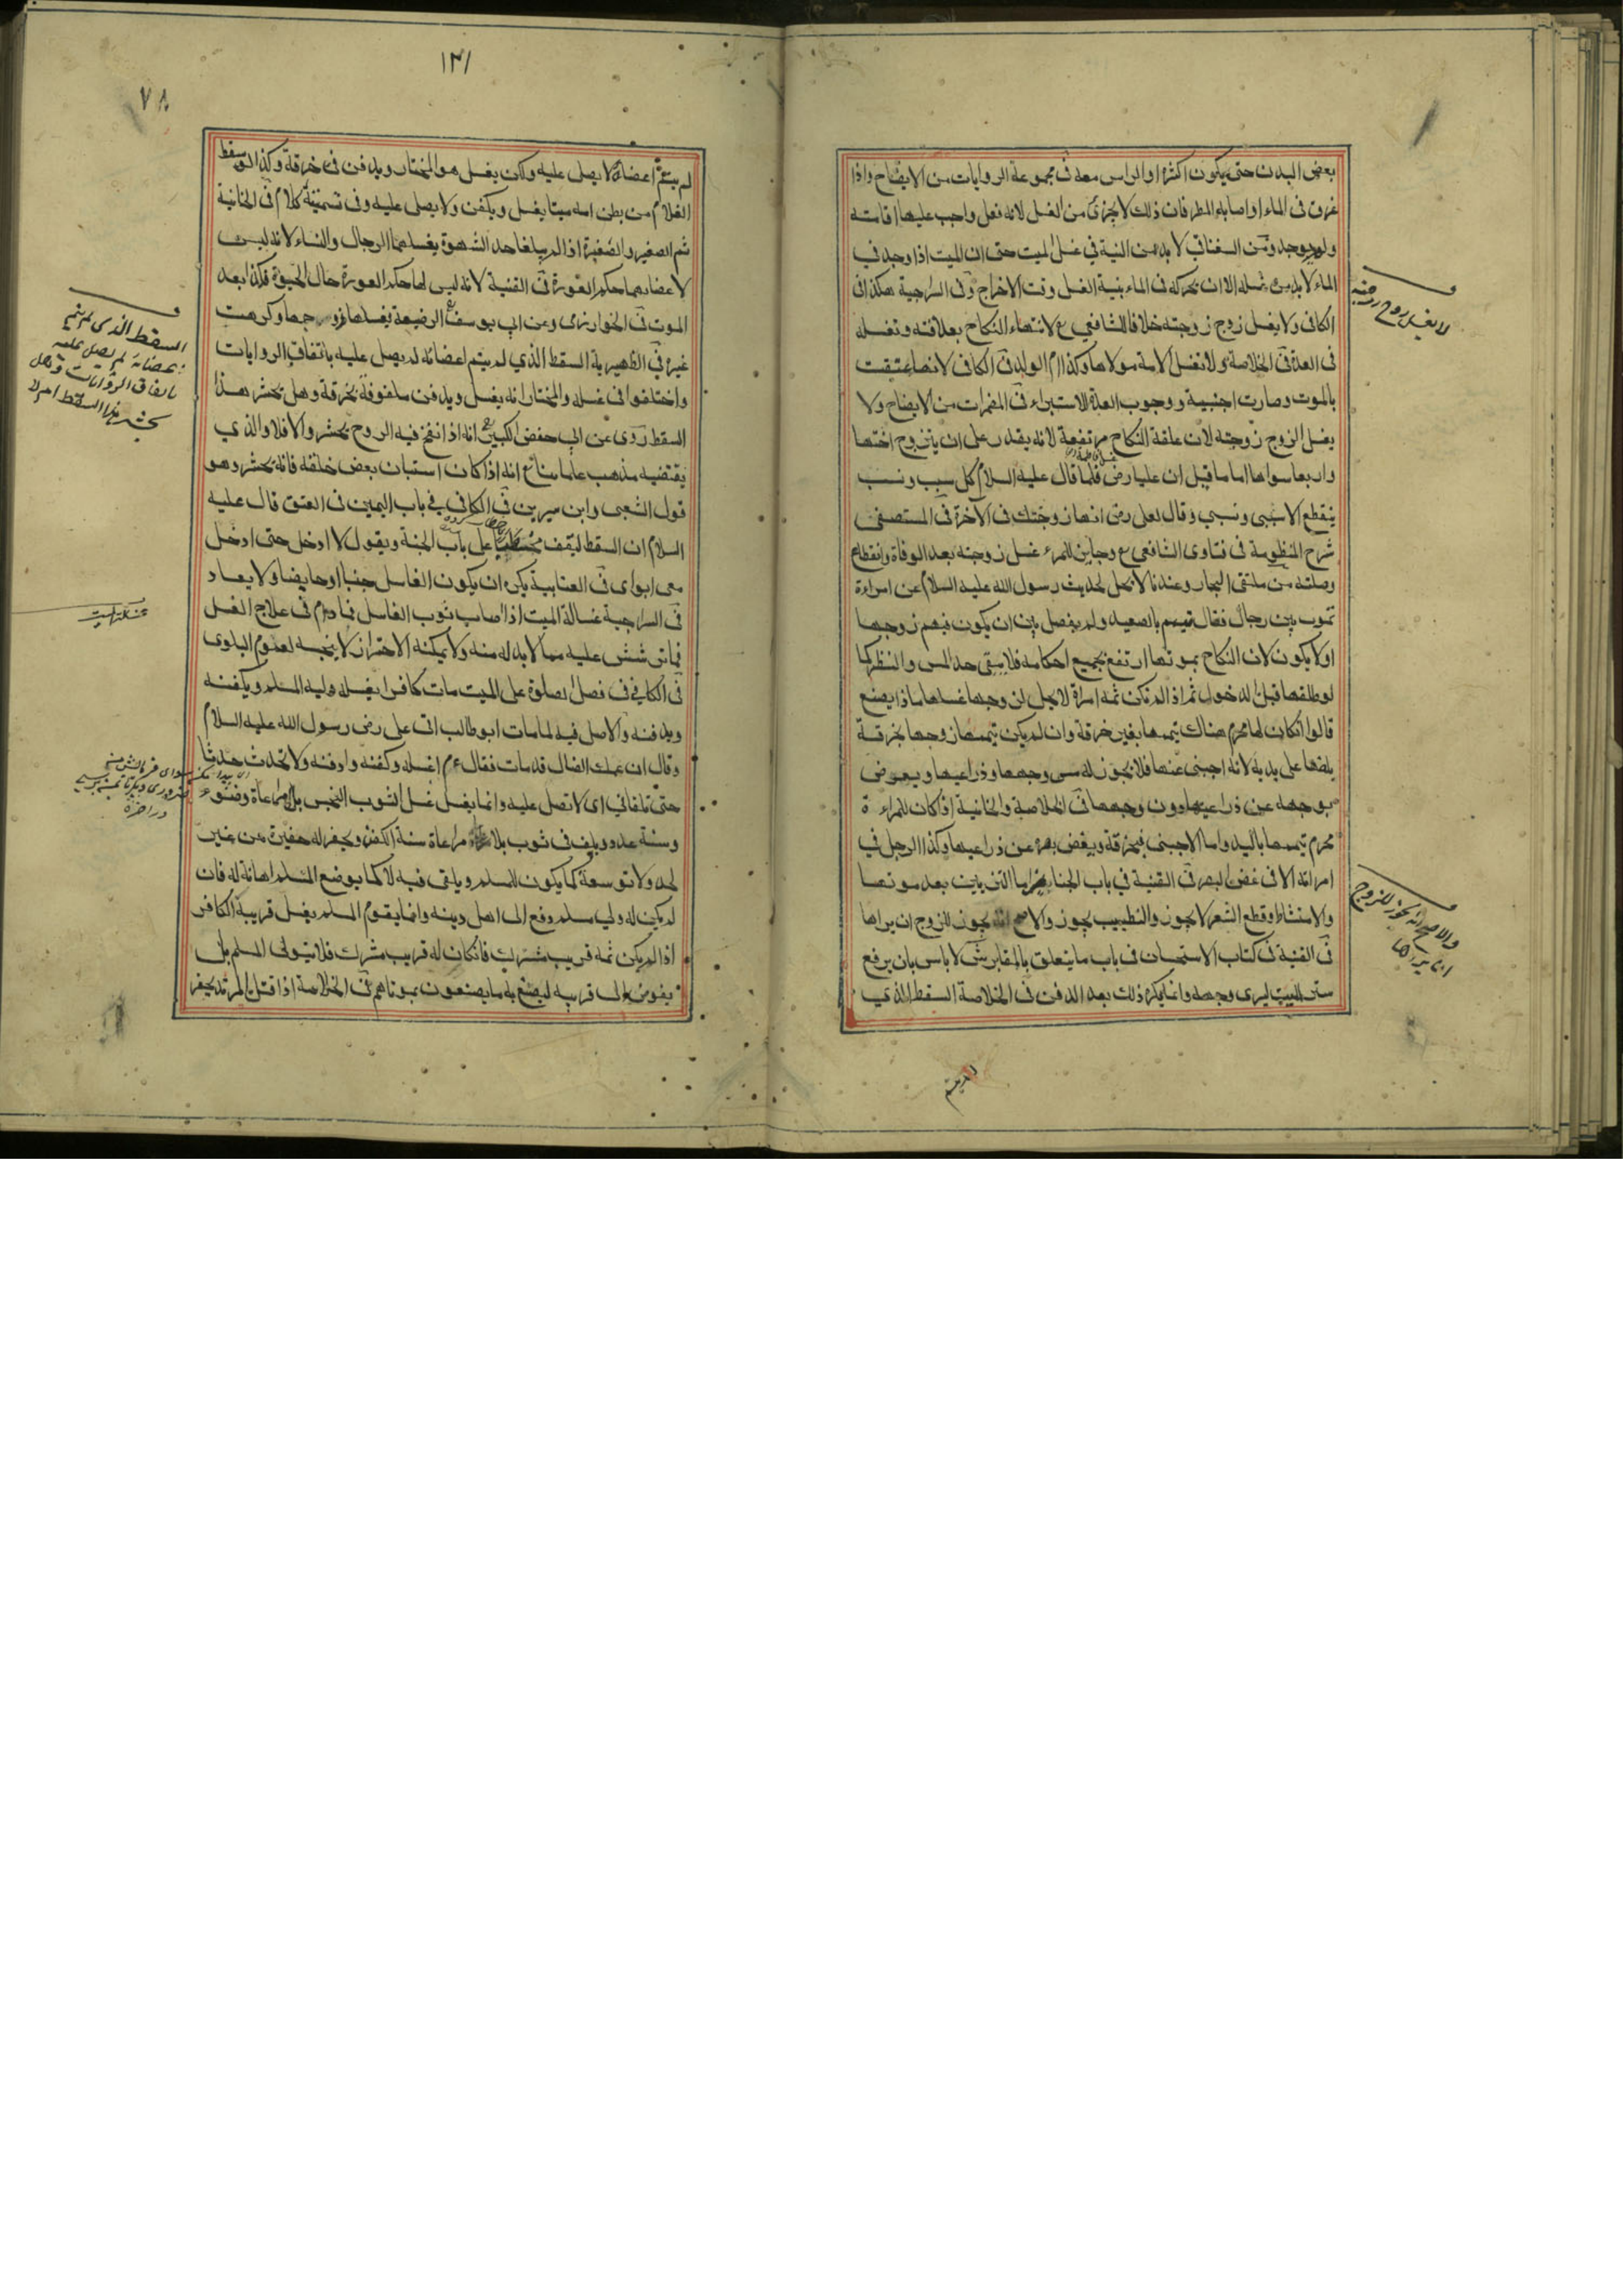 بعض البدن حتى يكون اكثره او الراس معه فى مجموعة الروايات من الايضاح واذا
غرق فى الماء او اصابه المطر فان ذلك لا يجزئ من الغسل لانه فعل واجب علينا اقامته
ولم يوجد ومن السغناقى لا بد من النية فى غسل الميت حتى ان الميت اذا وجد في
الماء لا بد من غسله الا ان يحركه فى الماء بنية الغسل وقت الاخراج وفى السراجية هكذا فى
الكافى ولا يغسل زوج زوجته خلافا للشافعي ع لانتهاء النكاح بعلاقته وتغسله
فى العدة فى الخلاصة ولا تغسل الامة مولاها وكذا ام الولد فى الكافى لانها عتقت
بالموت وصارت اجنبية ووجوب العدة للاستبراء فى المضمرات من الايضاح ولا
يغسل الزوج زوجته لان علقة النكاح مرتفعة لانه يقدر على ان يتزوج اختها
واربعا سواها اما ما قيل ان عليا رض فلما قال عليه السلام كل سبب ونسب
ينقطع الا سببى ونسبي وقال لعلى رض انها زوجتك فى الآخرة فى المستصفى
شرح المنظومة فى فتاوى الشافعى ع وجاين للمرء غسل زوجته بعد الوفاة وانقطاع
وصلته من ملتقى البحار وعندنا لا تحل لحديث رسول الله عليه السلام عن امراءة
تموت بين رجال فقال تيمم بالصعيد ولم يفصل بين ان يكون فيهم زوجها
او لا يكون لان النكاح بموتها ارتفع بجميع احكامه فلا يبقى حد المس والنظر كما
لو طلقها قبل الدخول ثم اذا لم تكن ثمه امراة لا يحل لزوجها غسلها ماذا يصنع
قالوا ان كان لها محرم هناك يتيممها بغير خرقة وان لم يكن يتيممها زوجها بخرقة
يلفها على يديه لانه اجنبى عنها فلا يجوز له مس وجهها وذراعيها ويعرض
بوجهه عن ذراعيها دون وجهها فى الخلاصة والخانية اذا كان للمراءة
محرم يتيممها باليد واما الاجنبى فبخرقة ويغض بصره عن ذراعيها وكذا الرجل في
امراته الا فى غض البصر فى القنية في باب الجنايز اما التزيين بعد موتها
والامتشاط وقطع الشعر لا يجوز والتطييب يجوز والاصح انه يجوز للزوج ان يراها
فى القنية فى كتاب الاستحسان فى باب ما يتعلق بالمقابر ش لا باس بان يرفع
ستر الميت ليرى وجهه وانما يكره ذلك بعد الدفن فى الخلاصة السقط الذي
لم يتم
لا يغسل زوج زوجته
والاصح انه يجوز للزوج
ان يراها
١٣١
٧٨
لم يتم اعضاؤه لا يصلى عليه ولكن يغسل هو المختار ويدفن فى خرقة وكذا لو سقط
الغلام من بطن امه ميتا يغسل ويكفن ولا يصلى عليه وفى تسميته كلام فى الخانية
ثم الصغير والصغيرة اذا لم يبلغا حد الشهوة يغسلهما الرجال والنساء لانه ليس
لاعضائهما حكم العورة فى القنية لانه ليس لها حكم العورة حال الحيوة فكذا بعد
الموت فى الخوارزمى وعن ابي يوسف ع الرضيعة يغسلها ذو رحمها وكرهت
غيره في الظهيرية السقط الذي لم يتم اعضائه لم يصل عليه باتفاق الروايات
واختلفوا فى غسله والمختار انه يغسل ويدفن ملفوفة بخرقة وهل يحشر هذا
السقط روى عن ابي حفص الكبير ع انه اذا نفخ فيه الروح يحشر والا فلا والذي
يقتضيه مذهب علمائنا ع انه اذا كان استبان بعض خلقه فانه يحشر وهو
قول الشعبى وابن سيرين فى الكافى في باب اليمين فى العتق قال عليه
السلام ان السقط ليقف محبنطئا على باب الجنة ويقول لا ادخل حتى ادخل
معى ابواى فى العتابية يكره ان يكون الغاسل جنبا او حايضا ولا يعاد
فى السراجية غسالة الميت اذا اصاب ثوب الغاسل فما دام فى علاج الغسل
فما ترشش عليه مما لا بد له منه ولا يمكنه الاحتراز لا ينجسه لعموم البلوى
فى الكافي فى فصل الصلوة على الميت مات كافر يغسله وليه المسلم ويكفنه
ويدفنه والاصل فيه لما مات ابو طالب اتى على رض رسول الله عليه السلام
وقال ان عمك الضال قد مات فقال ءم اغسله وكفنه وادفنه ولا تحدث حدثا
حتى تلقاني اى لا تصل عليه وانما يغسل غسل الثوب النجس بلا مراعاة وضوء
وسنة عدد ويلف فى ثوب بلا مراعاة سنة الكفن ويحفر له حفيرة من غير
لحد ولا توسعة كما يكون للمسلم ويلقى فيه لا كما يوضع المسلم اهانة له فان
لم يكن له ولي مسلم دفع الى اهل دينه وانما يقوم المسلم بغسل قريبه الكافر
اذا لم يكن ثمه قريب مشرك فان كان له قريب مشرك فلا يتولى المسلم بل
يفوض الى قريبه ليصنع به ما يصنعون بموتاهم فى الخلاصة اذا قتل المرتد يحفر
السقط الذى لم يتم
اعضائه لم يصل عليه
باتفاق الروايات وهل
يحشر هذا السقط ام لا
غسالة الميت